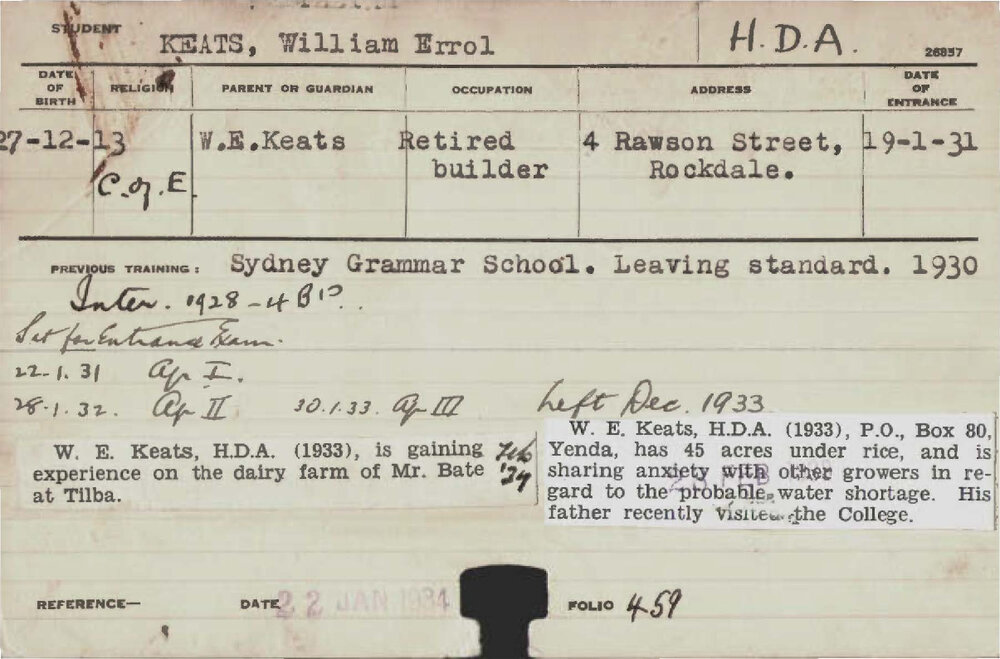 STUDENT KEATS, William Errol H.D.A. 26857
DATE OF BIRTH RELIGION PARENT OR GUARDIAN OCCUPATION ADDRESS DATE OF ENTRANCE
27-12-13 W.E.Keats Retired builder 4 Rawson Street, Rockdale. 19-1-31
C. of. E.
PREVIOUS TRAINING: Sydney Grammar School. Leaving standard. 1930
Inter. 1928-4 B
Sat for Entrance Exam.
22.1.31 Ag I.
28.1.32. Ag II 30.1.33. Ag III Left Dec. 1933
W. E. Keats, H.D.A. (1933), is gaining
experience on the dairy farm of Mr. Bate
at Tilba.
Feb '34
W. E. Keats, H.D.A. (1933), P.O., Box 80,
Yenda, has 45 acres under rice, and is
sharing anxiety with other growers in re-
gard to the probable water shortage. His
father recently visited the College.
REFERENCE— DATE 22 JAN 1934 FOLIO 459